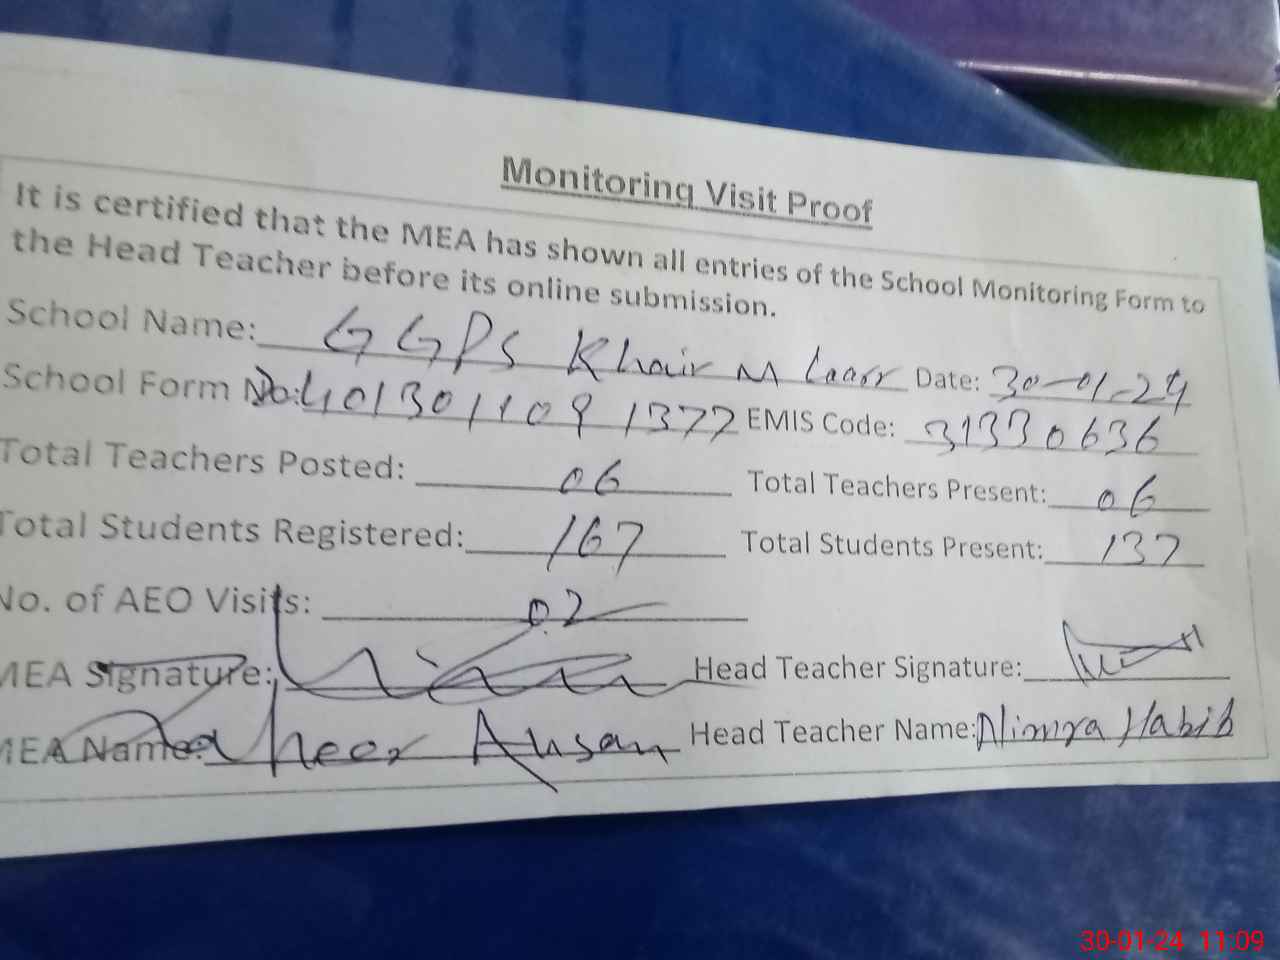 Monitoring Visit Proof
It is certified that the MEA has shown all entries of the School Monitoring Form to
the Head Teacher before its online submission.
School Name: GGPS Khair M Laarr Date: 30-01-24
School Form No: 401301109 1377 EMIS Code: 31330636
Total Teachers Posted: 06 Total Teachers Present: 06
Total Students Registered: 167 Total Students Present: 137
No. of AEO Visits: 02
MEA Signature: Head Teacher Signature:
MEA Name: Zaheer Ahsan Head Teacher Name: Nimra Habib
30-01-24 11:09